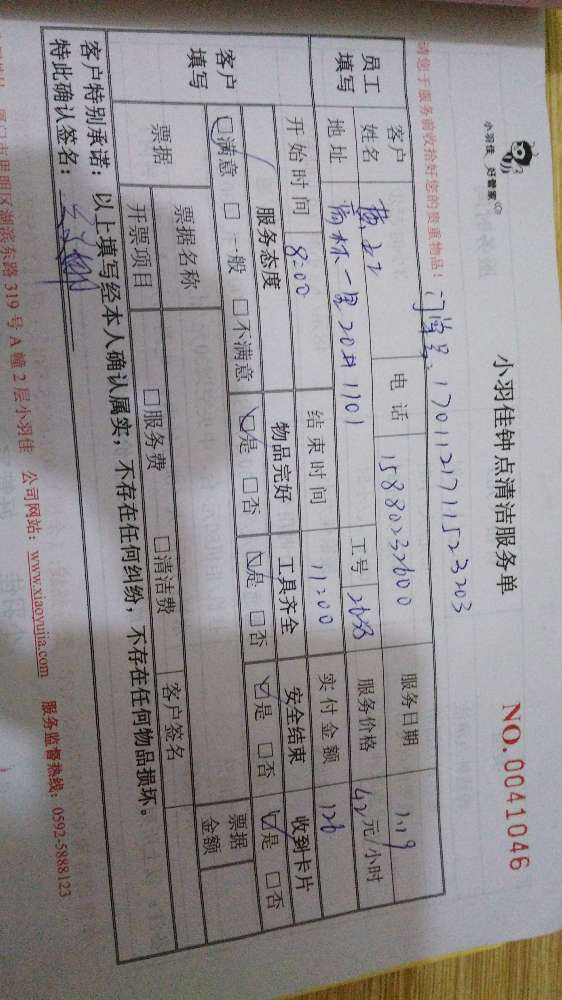 小羽佳 好管家
小羽佳钟点清洁服务单
NO.0041046
请您于服务前收拾好您的贵重物品!
17011217111523203
员工填写
客户姓名 电话 15880232600 服务日期 1.19
地址 一里20#1101 工号 服务价格 42元/小时
开始时间 8:00 结束时间 11:00 实付金额 126
客户填写
服务态度 物品完好 工具齐全 安全结束 收到卡片
☑满意 □一般 □不满意 ☑是 □否 ☑是 □否 ☑是 □否 ☑是 □否
票据 票据名称 客户签名 票据金额
开票项目 □服务费 □清洁费
客户特别承诺: 以上填写经本人确认属实,不存在任何纠纷,不存在任何物品损坏。
特此确认签名:
厦门市思明区湖滨东路319号A幢2层小羽佳 公司网站:www.xiaoyujia.com 服务监督热线:0592-5888123